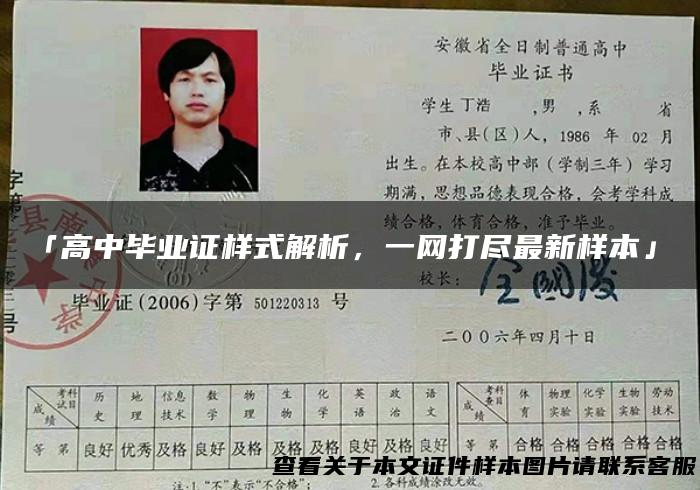 安徽省全日制普通高中
毕业证书
学生 丁浩 ,男 ,系 省
市、县(区)人, 1986 年 02 月
出生。在本校高中部(学制三年)学习
期满,思想品德表现合格,会考学科成
绩合格,体育合格,准予毕业。
「高中毕业证样式解析，一网打尽最新样本」
校长:
毕业证(2006)字第 501220313 号
二○○六年四月十日
考试科目 成绩 历史 地理 信息技术 数学 物理 生物 化学 英语 政治 语文
等第 良好 优秀 及格 良好 及格 及格 及格 良好 及格 良好
考查科目 成绩 体育 物理实验 化学实验 生物实验 劳动技术
等第 合格 合格 合格 合格 合格
查看关于本文证件样本图片请联系客服
注:1.“不”表示“不合格”;
2.各科成绩涂改无效。